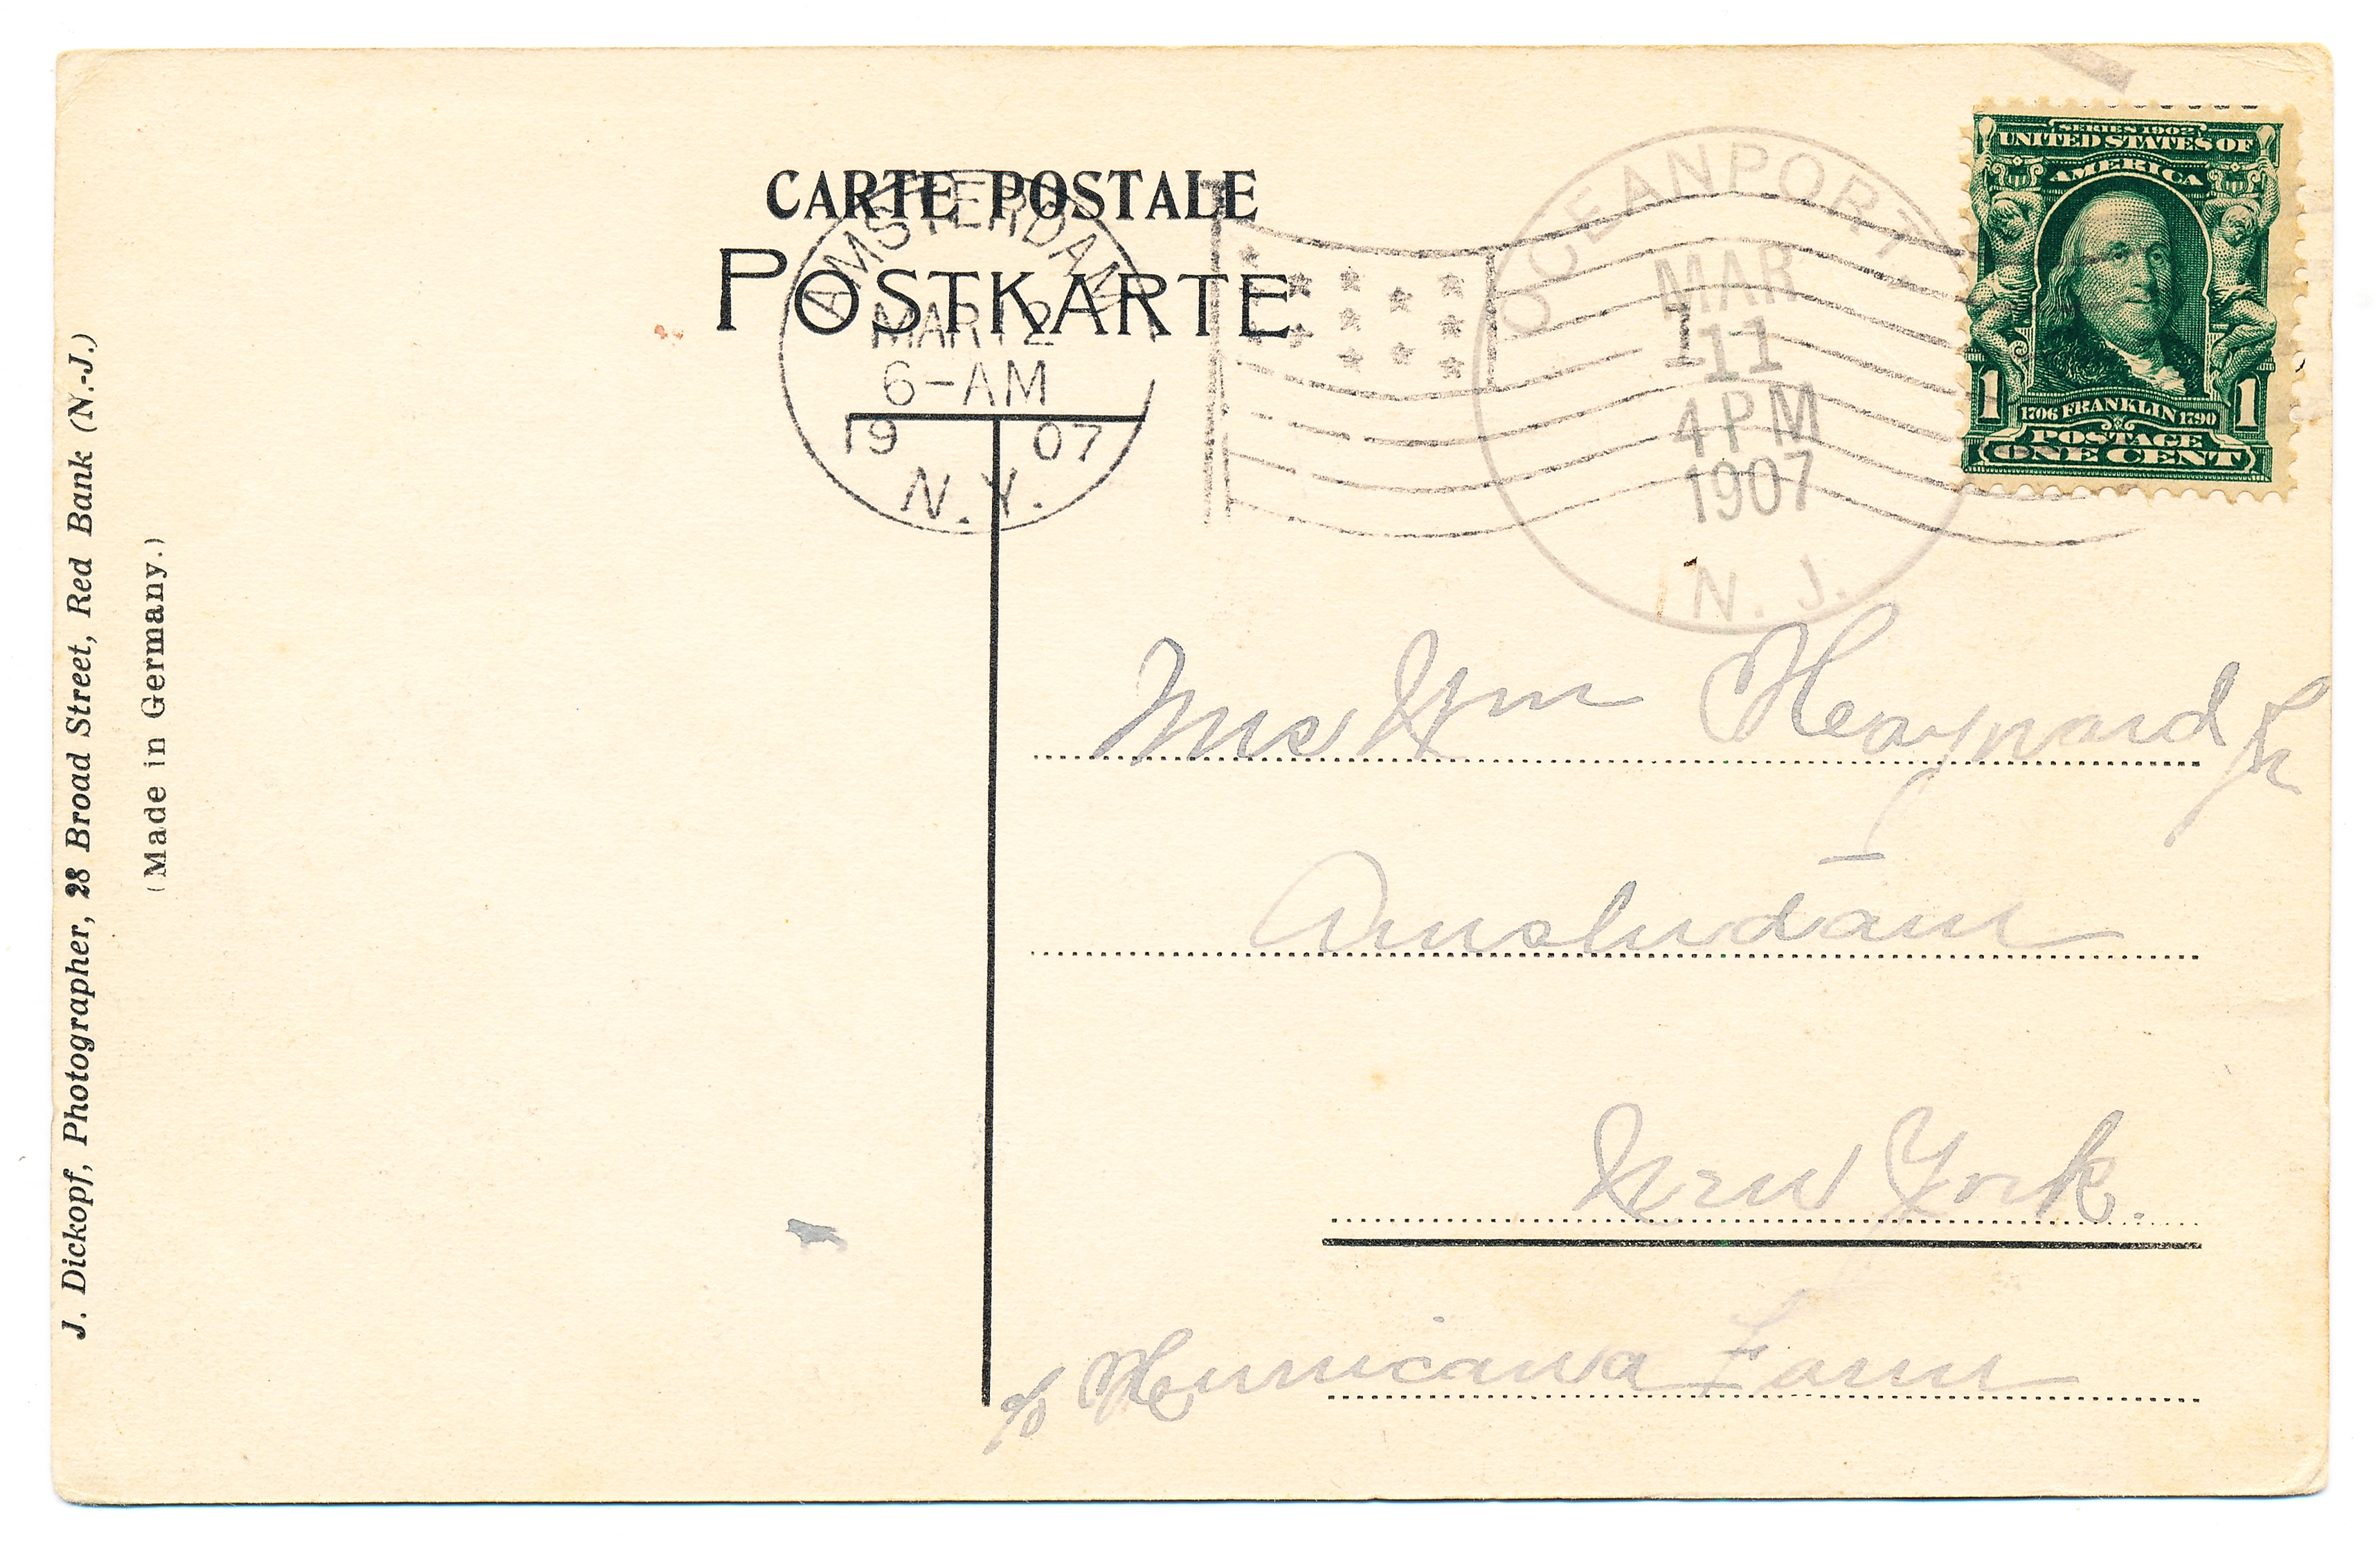 CARTE POSTALE
POSTKARTE
AMSTERDAM
MAR 12
6-AM
1907
N.Y.
1
OCEANPORT
MAR
11
4 PM
1907
N. J.
SERIES 1902
UNITED STATES OF
AMERICA
1 1706 FRANKLIN 1790 1
POSTAGE
ONE CENT
Mrs Wm Heaynard Jr
Amsterdam
New York.
c/o Hurricana Farm
J. Dickopf, Photographer, 28 Broad Street, Red Bank (N.-J.)
(Made in Germany.)